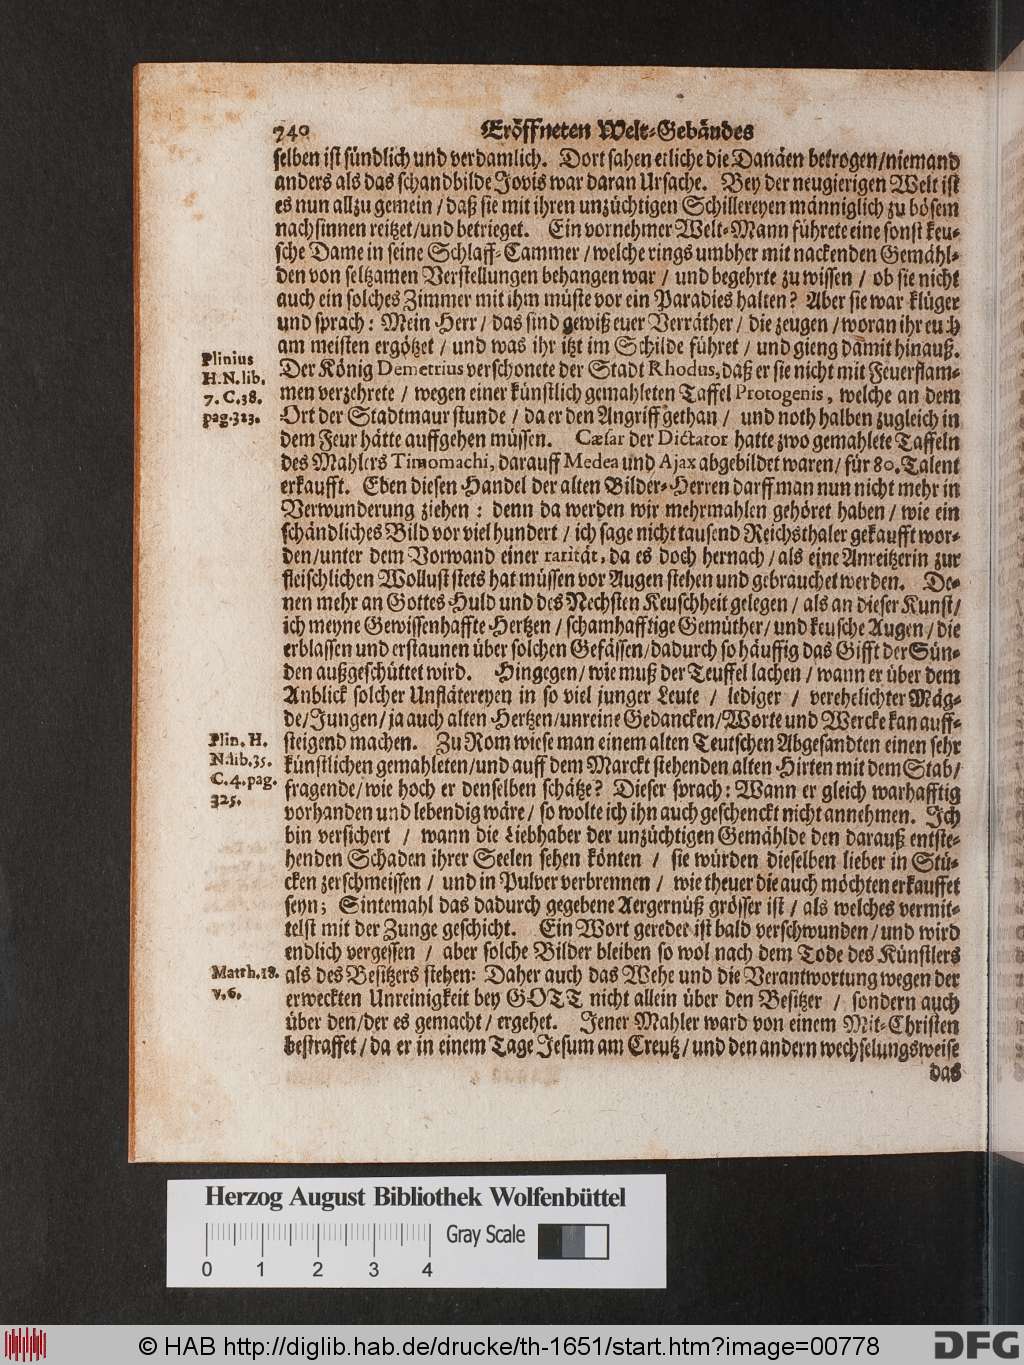 740 Eröffneten Welt-Gebäudes
selben ist sündlich und verdamlich. Dort sahen etliche die Danäen betrogen/niemand
anders als das schandbilde Jovis war daran Ursache. Bey der neugierigen Welt ist
es nun allzu gemein / daß sie mit ihren unzüchtigen Schillereyen männiglich zu bösem
nachsinnen reitzet/und betrieget. Ein vornehmer Welt-Mann führete eine sonst keu-
sche Dame in seine Schlaff-Cammer / welche rings umbher mit nackenden Gemähl-
den von seltzamen Verstellungen behangen war / und begehrte zu wissen / ob sie nicht
auch ein solches Zimmer mit ihm müste vor ein Paradies halten? Aber sie war klüger
und sprach: Mein Herr / das sind gewiß euer Verräther / die zeugen / woran ihr euch
am meisten ergötzet / und was ihr itzt im Schilde führet / und gieng damit hinauß.
Plinius
H.N. lib.
7. C. 38.
pag. 323.
Der König Demetrius verschonete der Stadt Rhodus, daß er sie nicht mit Feuerflam-
men verzehrete / wegen einer künstlich gemahleten Taffel Protogenis, welche an dem
Ort der Stadtmaur stunde / da er den Angriff gethan / und noth halben zugleich in
dem Feur hätte auffgehen müssen. Cæsar der Dictator hatte zwo gemahlete Taffeln
des Mahlers Timomachi, darauff Medea und Ajax abgebildet waren / für 80. Talent
erkaufft. Eben diesen Handel der alten Bilder-Herren darff man nun nicht mehr in
Verwunderung ziehen : denn da werden wir mehrmahlen gehöret haben / wie ein
schändliches Bild vor viel hundert / ich sage nicht tausend Reichsthaler gekaufft wor-
den/unter dem Vorwand einer rarität, da es doch hernach / als eine Anreitzerin zur
fleischlichen Wollust stets hat müssen vor Augen stehen und gebrauchet werden. De-
nen mehr an Gottes Huld und des Nechsten Keuschheit gelegen / als an dieser Kunst/
ich meyne Gewissenhaffte Hertzen / schamhafftige Gemüther / und keusche Augen / die
erblassen und erstaunen über solchen Gefässen/dadurch so häuffig das Gifft der Sün-
den außgeschüttet wird. Hingegen / wie muß der Teuffel lachen / wann er über dem
Anblick solcher Unflätereyen in so viel junger Leute / lediger / verehelichter Mäg-
de/Jungen/ ja auch alten Hertzen/unreine Gedancken/Worte und Wercke kan auff-
Plin. H.
N. lib. 35.
C. 4. pag.
325.
steigend machen. Zu Rom wiese man einem alten Teutschen Abgesandten einen sehr
künstlichen gemahleten/und auff dem Marckt stehenden alten Hirten mit dem Stab/
fragende/ wie hoch er denselben schätze? Dieser sprach: Wann er gleich warhafftig
vorhanden und lebendig wäre / so wolte ich ihn auch geschenckt nicht annehmen. Ich
bin versichert / wann die Liebhaber der unzüchtigen Gemählde den darauß entste-
henden Schaden ihrer Seelen sehen könten / sie würden dieselben lieber in Stü-
cken zerschmeissen / und in Pulver verbrennen / wie theuer die auch möchten erkauffet
seyn; Sintemahl das dadurch gegebene Aergernüß grösser ist / als welches vermit-
telst mit der Zunge geschicht. Ein Wort geredet ist bald verschwunden / und wird
endlich vergessen / aber solche Bilder bleiben so wol nach dem Tode des Künstlers
Matth. 18.
v. 6.
als des Besitzers stehen: Daher auch das Wehe und die Verantwortung wegen der
erweckten Unreinigkeit bey GOTT nicht allein über den Besitzer / sondern auch
über den/der es gemacht / ergehet. Jener Mahler ward von einem Mit-Christen
bestraffet / da er in einem Tage Jesum am Creutz / und den andern wechselungsweise
das
Herzog August Bibliothek Wolfenbüttel
Gray Scale
0 1 2 3 4
© HAB http://diglib.hab.de/drucke/th-1651/start.htm?image=00778
DFG